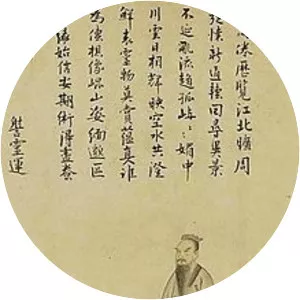 歷覽江北曠周
懷新道轉迥尋異景
不延亂流趨孤嶼〻媚中
川雲日相輝映空水共澄
鮮表靈物莫賞蘊真誰
為傳想像崐山姿緬邈區
緣始信安期術得盡養
謝靈運